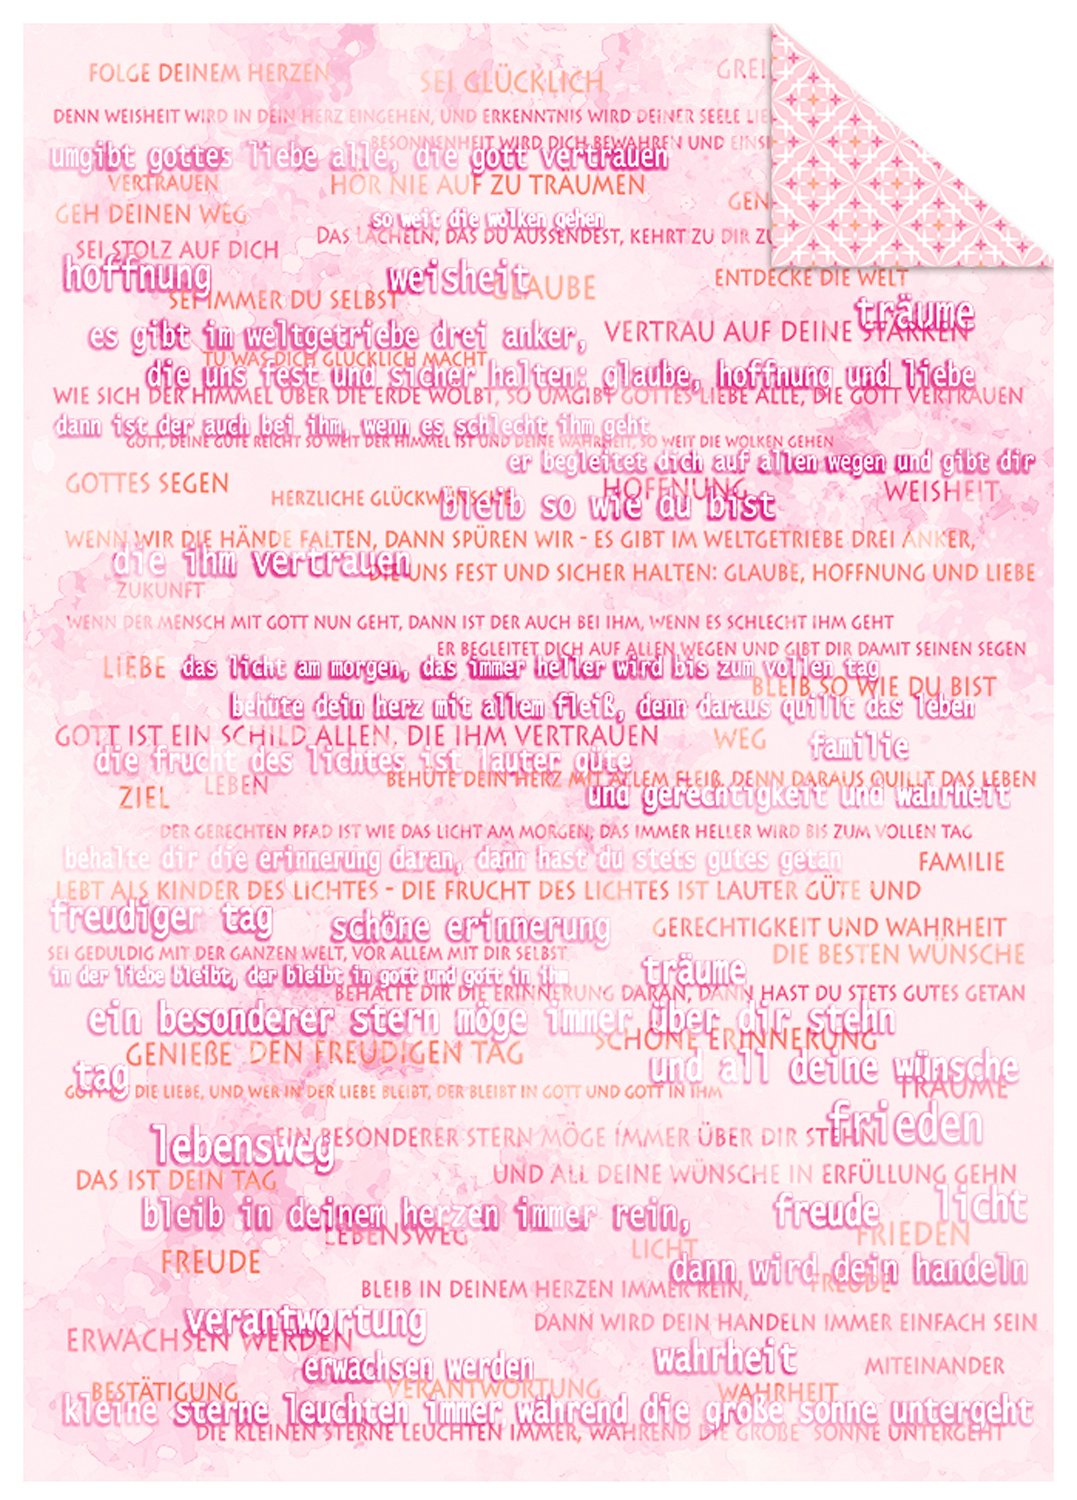 FOLGE DEINEM HERZEN
SEI GLÜCKLICH
DENN WEISHEIT WIRD IN DEIN HERZ EINGEHEN, UND ERKENNTNIS WIRD DEINER SEELE
BESONNENHEIT WIRD DICH BEWAHREN UND
umgibt gottes liebe alle, die gott vertrauen
VERTRAUEN
HÖR NIE AUF ZU TRÄUMEN
GEH DEINEN WEG
so weit die wolken gehen
DAS LÄCHELN, DAS DU AUSSENDEST, KEHRT ZU DIR
SEI STOLZ AUF DICH
hoffnung
weisheit
GLAUBE
ENTDECKE DIE WELT
SEI IMMER DU SELBST
träume
es gibt im weltgetriebe drei anker,
VERTRAU AUF DEINE STÄRKEN
TU WAS DICH GLÜCKLICH MACHT
die uns fest und sicher halten: glaube, hoffnung und liebe
WIE SICH DER HIMMEL ÜBER DIE ERDE WÖLBT, SO UMGIBT GOTTES LIEBE ALLE, DIE GOTT VERTRAUEN
dann ist der auch bei ihm, wenn es schlecht ihm geht
GOTT, DEINE GÜTE REICHT SO WEIT DER HIMMEL IST UND DEINE WAHRHEIT, SO WEIT DIE WOLKEN GEHEN
er begleitet dich auf allen wegen und gibt dir
GOTTES SEGEN
HOFFNUNG
WEISHEIT
HERZLICHE GLÜCKWÜNSCHE
bleib so wie du bist
WENN WIR DIE HÄNDE FALTEN, DANN SPÜREN WIR - ES GIBT IM WELTGETRIEBE DREI ANKER,
die ihm vertrauen
DIE UNS FEST UND SICHER HALTEN: GLAUBE, HOFFNUNG UND LIEBE
ZUKUNFT
WENN DER MENSCH MIT GOTT NUN GEHT, DANN IST DER AUCH BEI IHM, WENN ES SCHLECHT IHM GEHT
ER BEGLEITET DICH AUF ALLEN WEGEN UND GIBT DIR DAMIT SEINEN SEGEN
LIEBE
das licht am morgen, das immer heller wird bis zum vollen tag
BLEIB SO WIE DU BIST
behüte dein herz mit allem fleiß, denn daraus quillt das leben
GOTT IST EIN SCHILD ALLEN, DIE IHM VERTRAUEN
WEG
familie
die frucht des lichtes ist lauter güte
LEBEN
BEHÜTE DEIN HERZ MIT ALLEM FLEIß, DENN DARAUS QUILLT DAS LEBEN
ZIEL
und gerechtigkeit und wahrheit
DER GERECHTEN PFAD IST WIE DAS LICHT AM MORGEN, DAS IMMER HELLER WIRD BIS ZUM VOLLEN TAG
behalte dir die erinnerung daran, dann hast du stets gutes getan
FAMILIE
LEBT ALS KINDER DES LICHTES - DIE FRUCHT DES LICHTES IST LAUTER GÜTE UND
freudiger tag
schöne erinnerung
GERECHTIGKEIT UND WAHRHEIT
SEI GEDULDIG MIT DER GANZEN WELT, VOR ALLEM MIT DIR SELBST
DIE BESTEN WÜNSCHE
in der liebe bleibt, der bleibt in gott und gott in ihm
träume
BEHALTE DIR DIE ERINNERUNG DARAN, DANN HAST DU STETS GUTES GETAN
ein besonderer stern möge immer über dir stehn
SCHÖNE ERINNERUNG
GENIEßE DEN FREUDIGEN TAG
und all deine wünsche
tag
TRÄUME
GOTT IST DIE LIEBE, UND WER IN DER LIEBE BLEIBT, DER BLEIBT IN GOTT UND GOTT IN IHM
frieden
EIN BESONDERER STERN MÖGE IMMER ÜBER DIR STEHN
lebensweg
DAS IST DEIN TAG
UND ALL DEINE WÜNSCHE IN ERFÜLLUNG GEHN
licht
bleib in deinem herzen immer rein,
freude
LEBENSWEG
FRIEDEN
LICHT
FREUDE
dann wird dein handeln
FREUDE
BLEIB IN DEINEM HERZEN IMMER REIN,
verantwortung
DANN WIRD DEIN HANDELN IMMER EINFACH SEIN
ERWACHSEN WERDEN
erwachsen werden
wahrheit
MITEINANDER
BESTÄTIGUNG
VERANTWORTUNG
WAHRHEIT
kleine sterne leuchten immer während die große sonne untergeht
DIE KLEINEN STERNE LEUCHTEN IMMER, WÄHREND DIE GROßE SONNE UNTERGEHT